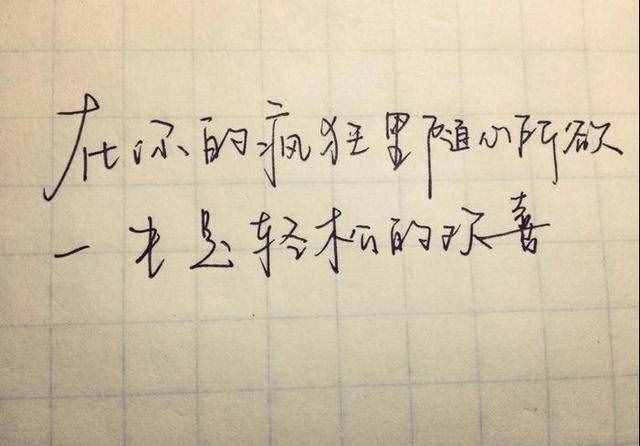 在你的疯狂里随心所欲
一半是轻松的欢喜